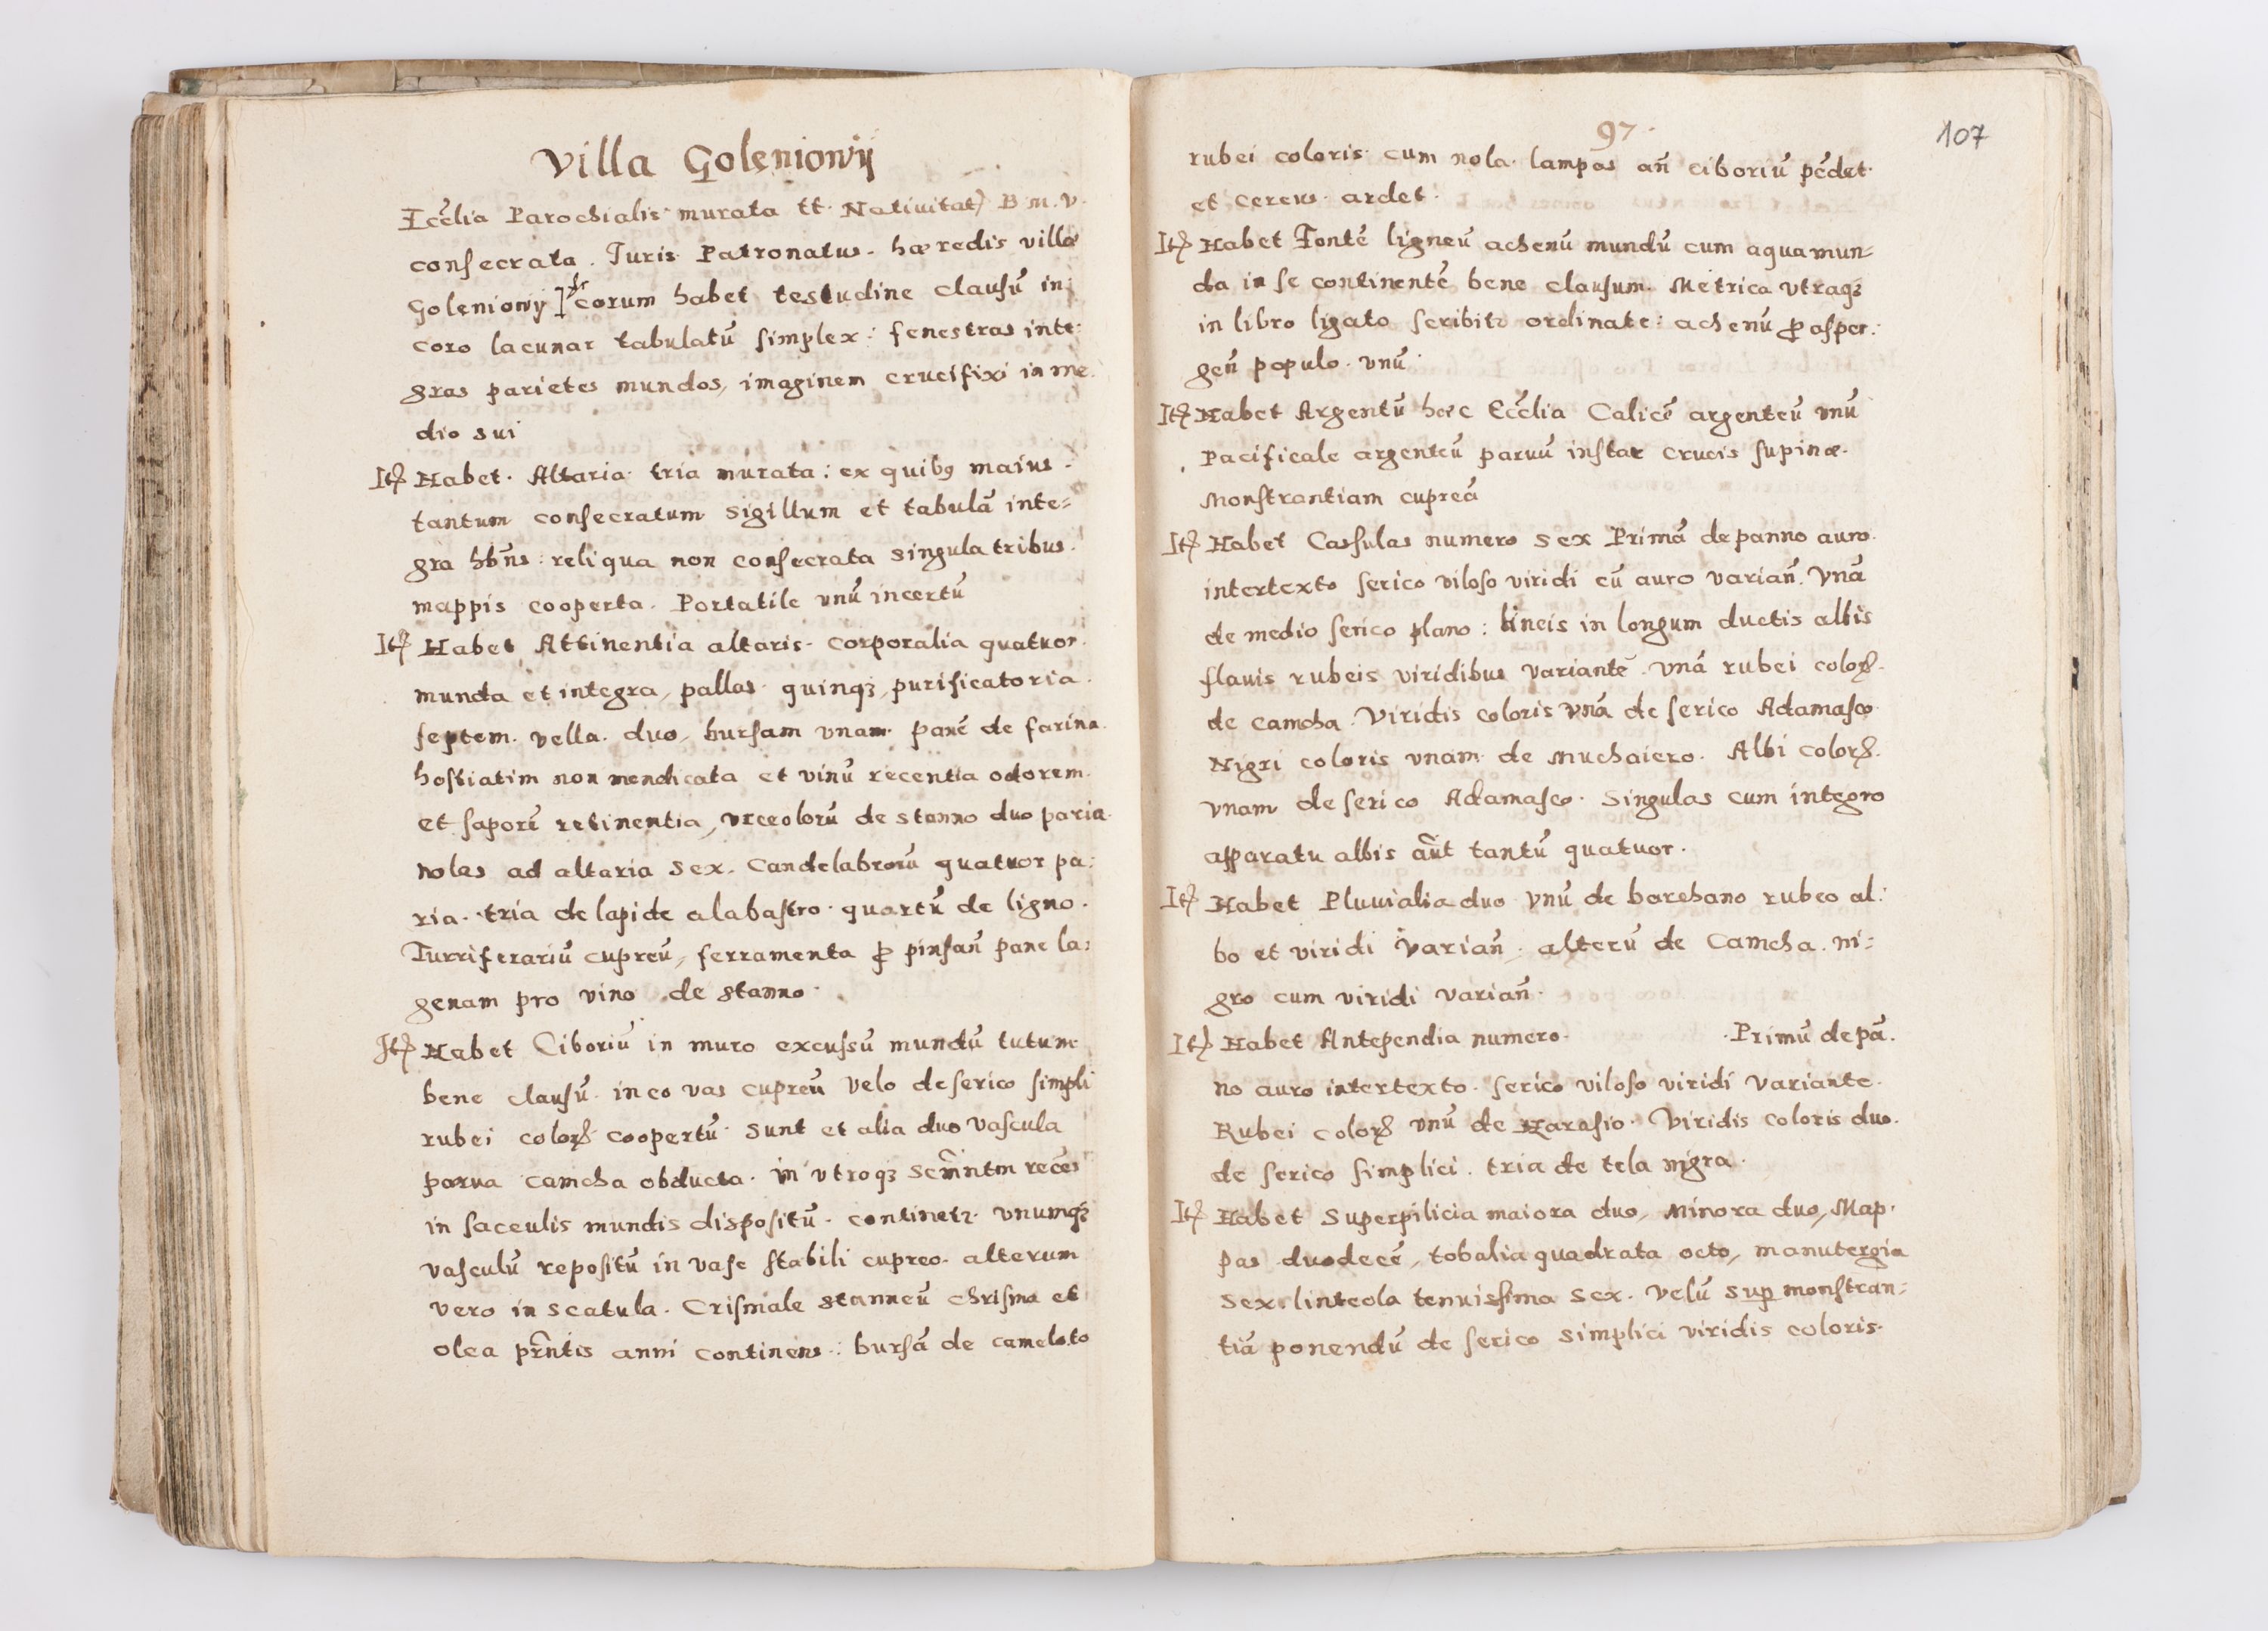 Villa Goleniowij
Eccl̃ia Parochialis murata tt. Natiuitat) B m. v.
consecrata. Juris Patronatus. hæredis villæ
Goleniowij ] corum habet testudine clausũ in
coro lacunar tabulatũ simplex: fenestras inte:
gras parietes mundos, imaginem crucifixi in me
dio sui
It) Habet. Altaria tria murata: ex quibꝯ maius
tantum consecratum sigillum et tabulã inte=
gra hñs: reliqua non consecrata singula tribus
mappis cooperta. Portatile vnũ incertũ
It) Habet Attinentia altaris. corporalia quatuor
munda et integra, pallas quinqꝫ, purificatoria
septem. vella. duo, bursam vnam. panẽ de farina
hostiatim non mendicata et vinũ recentia odorem
et saporẽ retinentia, vrceolorũ de stanno duo paria
nolas ad altaria sex. Candelabrorũ quatuor pa:
ria. tria de lapide alabastro. quartũ de ligno.
Turriferariũ cupreũ, ferramenta ꝓ pinsañ pane la:
genam pro vino de stanno.
It) Habet Ciboriũ in muro excussũ mundũ tutum
bene clausũ in eo vas cupreũ velo de serico simpli
rubei coloꝝ coopertũ. sunt et alia duo vascula
parua camcha obducta. in vtroqꝫ Scr̃mntm recẽs
in sacculis mundis dispositũ. continetr. vnumqꝫ
vasculũ repositũ in vase stabili cupreo. alterum
vero in scatula. Crismale stanneũ chrisma et
olea pr̃ntis anni continens: bursã de cameloto
97.
107
rubei coloris cum nola. lampas añ ciboriũ pẽdet.
et cereus. ardet.
It) Habet Fontẽ ligneũ achenũ mundũ cum aqua mun=
da in se continentẽ bene clausum. Metrica vtraqꝫ
in libro ligato scribitr ordinate: achenũ ꝓ asper:
geñ populo. vnũ
It) Habet Argentũ hæc Eccl̃ia Calicẽ argenteũ vnũ
Pacificale argenteũ paruũ instar crucis supinæ.
Monstrantiam cupreã
It) Habet Cassulas numero sex Primã de panno auro
intertexto serico viloso viridi cũ auro variañ. Vnã
de medio serico plano: lineis in longum ductis albis
flauis rubeis viridibus variantẽ. vnã rubei coloꝝ
de camcha. Viridis coloris vnã de serico Adamasco
Nigri coloris vnam de Muchaiero. Albi coloꝝ
vnam de serico Adamasco. Singulas cum integro
apparatu albis aũt tantũ quatuor.
It) Habet Pluuialia duo vnũ de barchano rubeo al:
bo et viridi variañ. alterũ de Camcha. ni=
gro cum viridi variañ.
It) Habet Antependia numero. Primũ de pã.
no auro intertexto. serico viloso viridi variante.
Rubei coloꝝ vnũ de Harasio. Viridis coloris duo.
de serico simplici. tria de tela nigra.
It) Habet Superpilicia maiora duo, Minora duo, Map.
pas duodecẽ, tobalia quadrata octo, manutergia
sex. linteola tenuissima sex. velũ sup monstran=
tiã ponendũ de serico simplici viridis coloris.